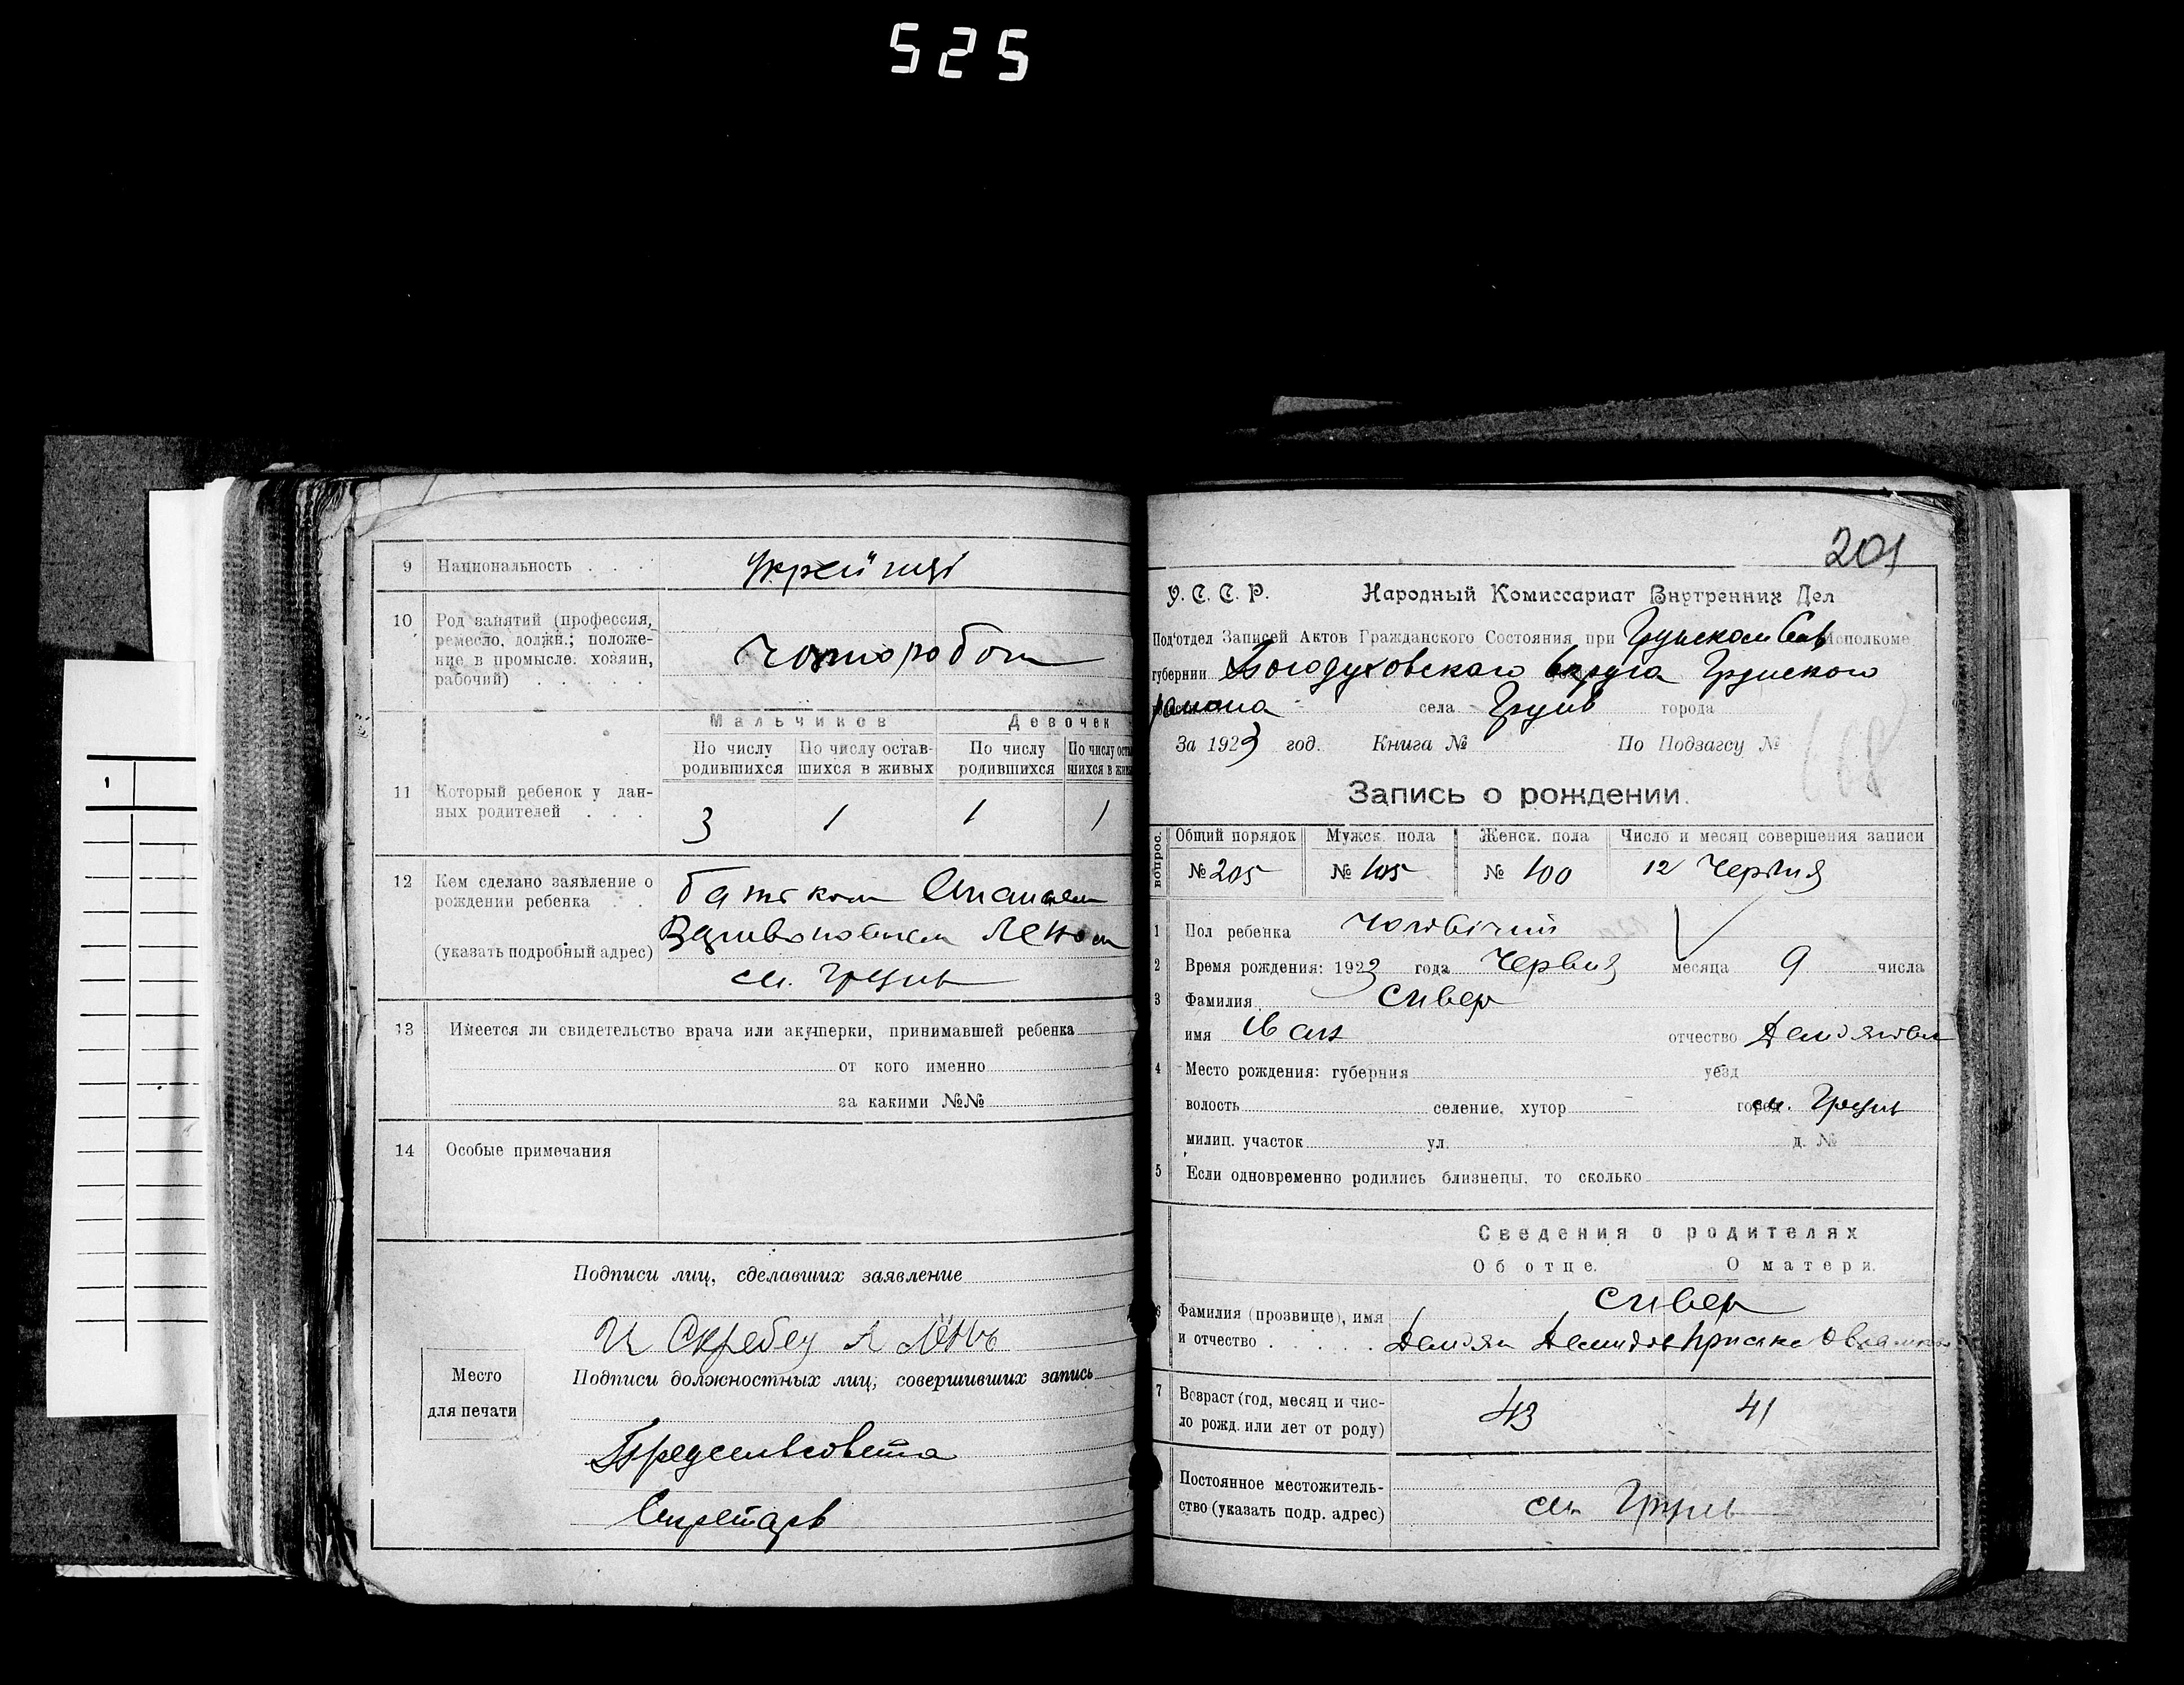 525
9 Национальность . . . Украйнці
10 Род занятий (профессия,
ремесло, должн.; положе-
ние в промысле: хозяин,
рабочий) . . . . .
Мальчиков Девочек
По числу родившихся По числу остав-шихся в живых По числу родившихся По числу
11 Который ребенок у дан-
ных родителей . . . 3 1 1 1
12 Кем сделано заявление о
рождении ребенка . . батьком
(указать подробный адрес)
см. Грунь
13 Имеется ли свидетельство врача или акушерки, принимавшей ребенка
от кого именно
за какими №№
14 Особые примечания
Подписи лиц, сделавших заявление
Подписи должностных лиц, совершивших запись
Место
для печати
Предсельсовета
Секретарь
201
У. С. С. Р. Народный Комиссариат Внутренних Дел
Под'отдел Записей Актов Гражданского Состояния при Грунском
губернии Богодуховскаго Округа Грунского
района села Грунь города
За 1923 год. Книга № По Подзагсу № 168
Запись о рождении.
вопрос. Общий порядок Мужск. пола Женск. пола Число и месяц совершения записи
№ 205 № 105 № 100 12 Червня
1 Пол ребенка чоловічий
2 Время рождения: 1923 года Червня месяца 9 числа
3 Фамилия Сивер
имя Іван отчество
4 Место рождения: губерния уезд
волость селение, хутор город см. Грунь
милиц. участок ул. д. №
5 Если одновременно родились близнецы, то сколько
Сведения о родителях
Об отце. О матери.
Сивер
6 Фамилия (прозвище), имя
и отчество . . . . . Демян Демидов Приська
7 Возраст (год, месяц и чис-
ло рожд. или лет от роду) 43 41
Постоянное местожитель-
ство (указать подр. адрес) см Грунь